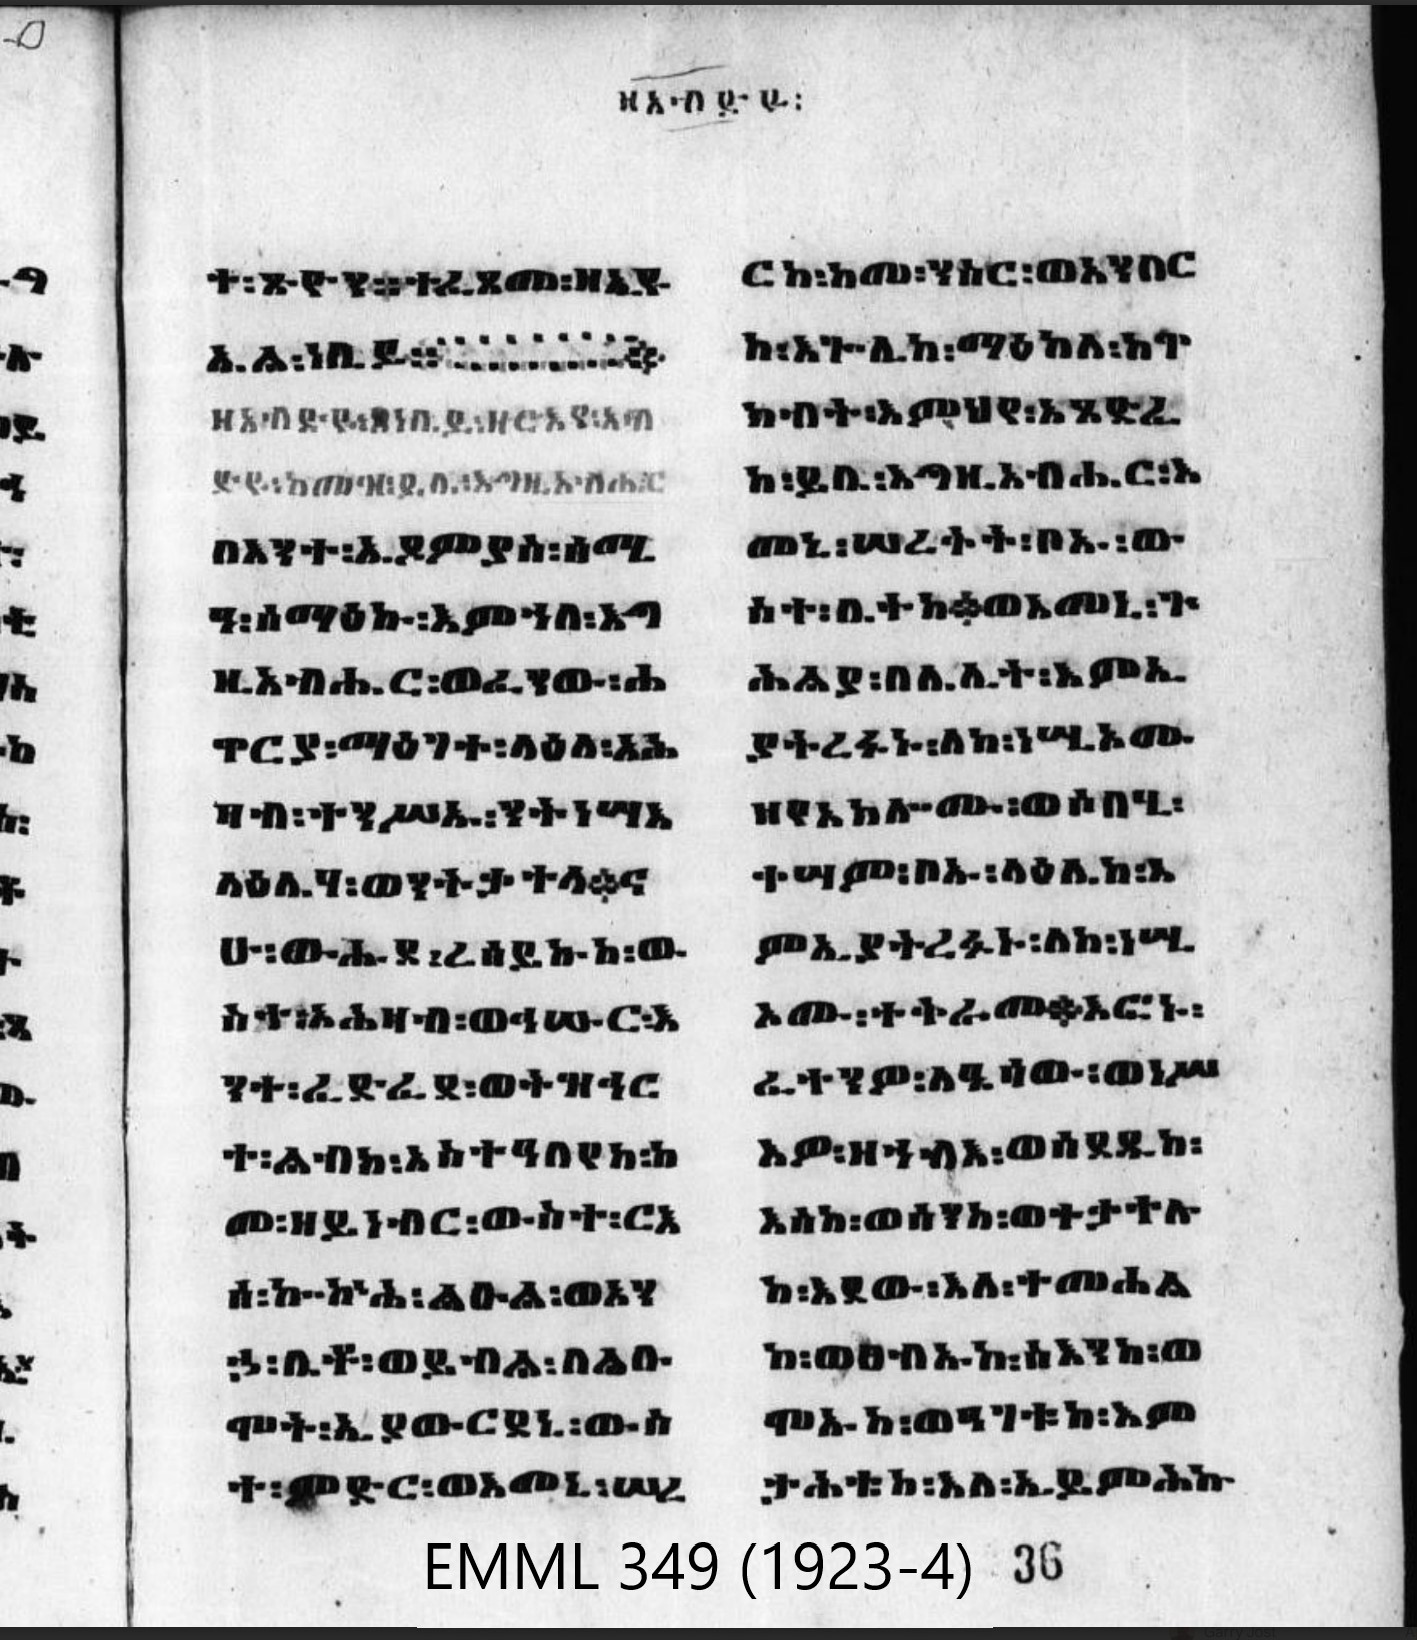 ዘአብድዩ፡
ት፡ጼዴና፡፡ተፈጸመ፡ዘኢዩ
ኤል፡ነቢይ፡፡
ዘአብድዩ፡ነቢይ፡ዘርእየ፡አብ
ድዩ፡ከመዝ፡ይቤ፡እግዚአብሔር
በእንተ፡ኤዶምያስ፡ሰሚ
ዓ፡ሰማዕኩ፡እምኀበ፡እግ
ዚአብሔር፡ወፈነወ፡ሐ
ዋርያ፡ማዕገተ፡ላዕለ፡አሕ
ዛብ፡ተንሥኡ፡ንትነሣእ
ላዕሌሃ፡ወንትቃተላ፡ና
ሁ፡ውሑደ፡ረሰይኩከ፡ው
ስተ፡አሕዛብ፡ወኅሡር፡አ
ንተ፡ፈድፈደ፡ወትዝኅር
ተ፡ልብከ፡አስተዓበየከ፡ከ
መ፡ዘይነብር፡ውስተ፡ርእ
ሰ፡ኰኵሕ፡ልዑል፡ወአን
ኂ፡ቤቶ፡ወይብል፡በልቡ
መኑ፡ኢያወርደኒ፡ውስ
ተ፡ምድር፡ወእመኒ፡ሠረ
ርከ፡ከመ፡ንስር፡ወእንበር
ከ፡እጐሊከ፡ማዕከለ፡ከዋ
ክብት፡እምህየ፡አጸድፈ
ከ፡ይቤ፡እግዚአብሔር፡እ
መኒ፡ሠረቀት፡ቦኡ፡ው
ስተ፡ቤትከ፡ወእመኒ፡ጕ
ሕልያ፡በሌሊት፡እምኢ
ያትረፉኑ፡ለከ፡ነሢኦሙ
ዘየአክሎሙ፡ወሶበሂ፡
ቀሣም፡ቦኡ፡ላዕሌከ፡እ
ምኢያትረፉኑ፡ለከ፡ነሢ
ኦሙ፡ቀትራመ፡እፎኑ፡
ፈተንዎ፡ለዔሳው፡ወነሥ
እዎ፡ዘኅቡእ፡ወሰደዱከ፡
እስከ፡ወሰንከ፡ወተቃተሉ
ከ፡ዕደው፡እለ፡ተመሐል
ከ፡ወፀብኡከ፡ሰብእከ፡ወ
ሞኡከ፡ወዓገቱከ፡እም
ታሕቱከ፡እለ፡ኢይምሕኩ
36
EMML 349 (1923-4)